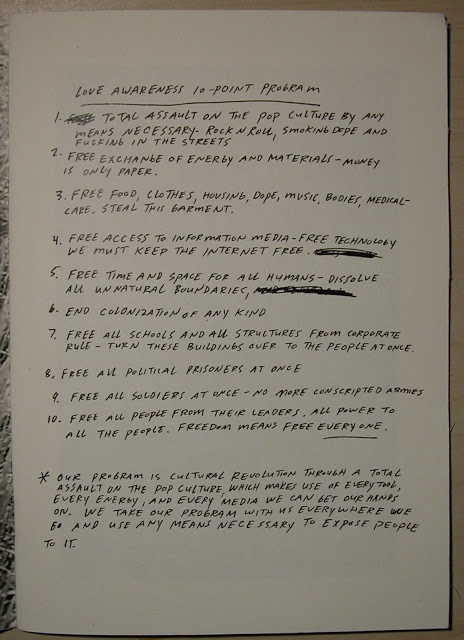 LOVE AWARENESS 10-POINT PROGRAM
1. TOTAL ASSAULT ON THE POP CULTURE BY ANY
MEANS NECESSARY - ROCK N ROLL, SMOKING DOPE AND
FUCKING IN THE STREETS
2. FREE EXCHANGE OF ENERGY AND MATERIALS - MONEY
IS ONLY PAPER.
3. FREE FOOD, CLOTHES, HOUSING, DOPE, MUSIC, BODIES, MEDICAL-
CARE. STEAL THIS GARMENT.
4. FREE ACCESS TO INFORMATION MEDIA - FREE TECHNOLOGY
WE MUST KEEP THE INTERNET FREE.
5. FREE TIME AND SPACE FOR ALL HUMANS - DISSOLVE
ALL UNNATURAL BOUNDARIES,
6. END COLONIZATION OF ANY KIND
7. FREE ALL SCHOOLS AND ALL STRUCTURES FROM CORPORATE
RULE - TURN THESE BUILDINGS OVER TO THE PEOPLE AT ONCE.
8. FREE ALL POLITICAL PRISONERS AT ONCE
9. FREE ALL SOLDIERS AT ONCE - NO MORE CONSCRIPTED ARMIES
10. FREE ALL PEOPLE FROM THEIR LEADERS. ALL POWER TO
ALL THE PEOPLE. FREEDOM MEANS FREE EVERYONE.
* OUR PROGRAM IS CULTURAL REVOLUTION THROUGH A TOTAL
ASSAULT ON THE POP CULTURE, WHICH MAKES USE OF EVERY TOOL,
EVERY ENERGY, AND EVERY MEDIA WE CAN GET OUR HANDS
ON. WE TAKE OUR PROGRAM WITH US EVERYWHERE WE
GO AND USE ANY MEANS NECESSARY TO EXPOSE PEOPLE
TO IT.